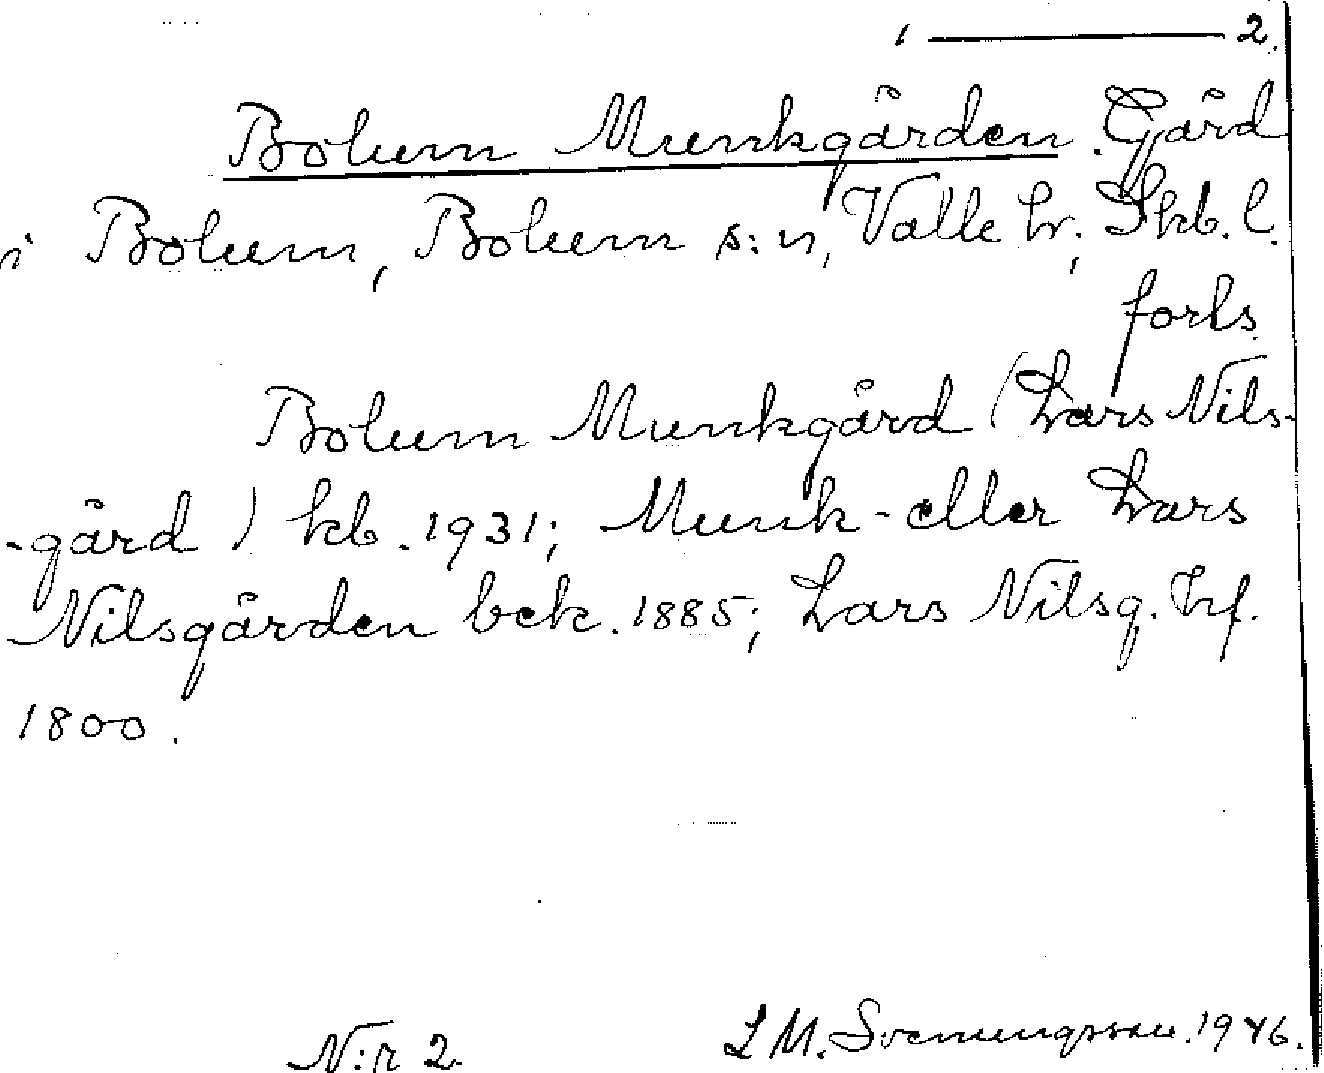 1 ——— 2.
Bolum Munkgården. Gård
i Bolum, Bolum s:n, Valle hr, Skb. l.
forts.
Bolum Munkgård (Lars Nils-
-gård) kb. 1931; Munk- eller Lars
Nilsgården bek. 1885; Lars Nilsg. hf.
1800.
N:r 2. L M. Svenungsson. 1946.